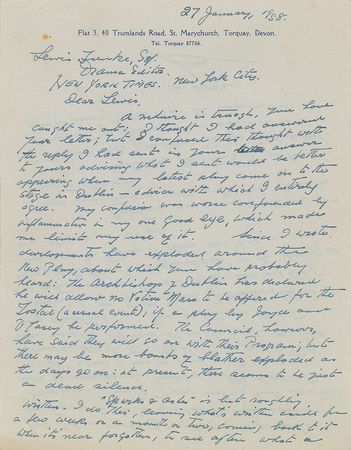 27 January, 1958.
Flat 3, 40 Trumlands Road, St. Marychurch, Torquay, Devon.
Tel. Torquay 87766.
Lewis Funke, Esq.
Drama Editor.
NEW YORK TIMES. New York City.
Dear Lewis,
A notice is enough. You have
caught me out. I thought I had answered
your letter; but I confused this thought with
the reply I had sent in your answer
to yours advising what I sent would be better
appearing when my latest play came on to the
stage in Dublin — advice with which I entirely
agree. My confusion was worse confounded by
inflammation in my one good eye, which made
me limit my use of it. Since I wrote
developments have exploded around the
New Play, about which you have probably
heard: The Archbishop of Dublin has declared
he will allow no Votive Mass to be offered for the
Tostal (annual event), if a play by Joyce and
O'Casey be performed. The Council, however,
have said they will go on with their Program; but
there may be more bombs of blather exploded as
the days go on: at present, there seems to be just
a dead silence.
"Sparks & Ashes" is but roughly
written. I do this, leaving what's written aside for
a few weeks or a month or two, coming back to it
when it's near forgotten, to see often what a